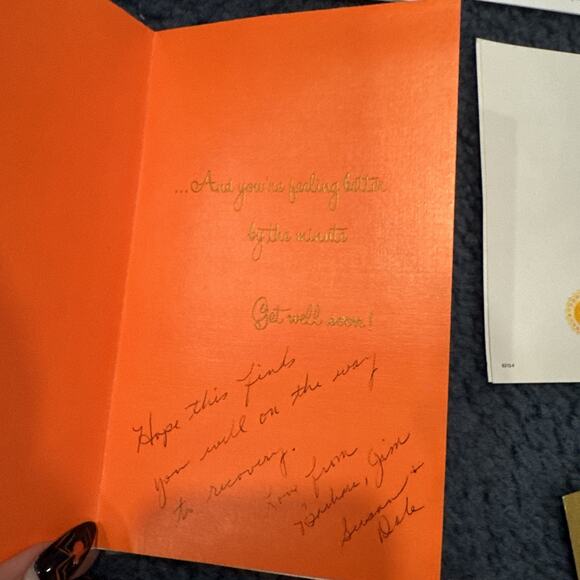 ...And you're feeling better
by the minute
Get well soon!
Hope this finds
you well on the way
to recovery.
Love from
Barbara, Jim
Susan +
Dale